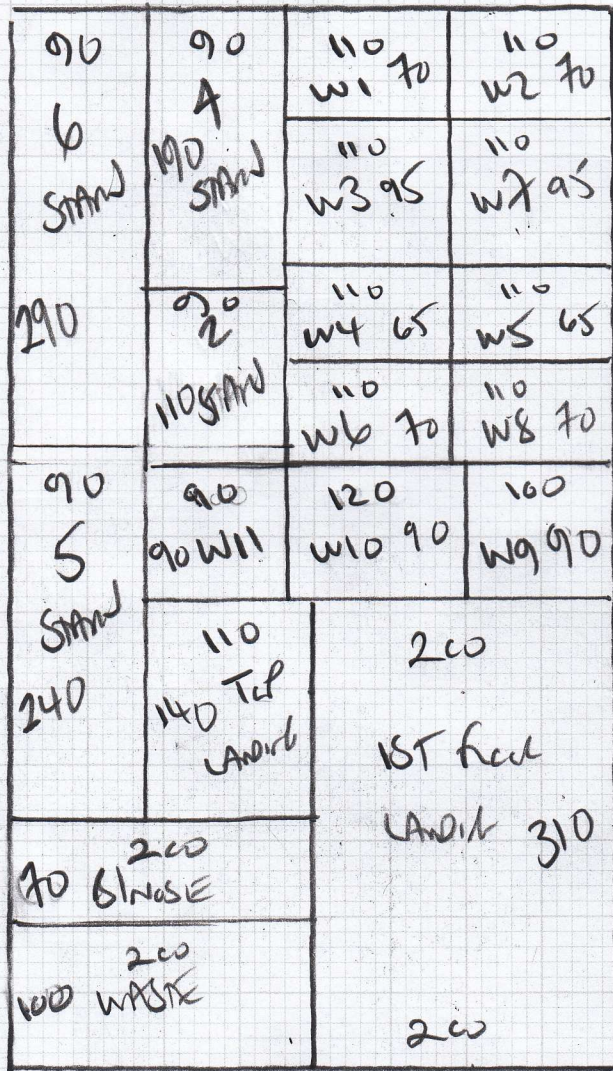 90
6
STAND
290
90
4
190
STAND
110
W1 70
110
W2 70
110
W3 95
110
W7 95
90
2
110 STAND
110
W4 65
110
W5 65
110
W6 70
110
W8 70
90
5
STAND
240
90
90 W11
120
W10 90
100
W9 90
110
140 TOP
LANDING
200
1ST FLOOR
LANDING 310
200
200
70 B/NOSE
200
100 WASTE